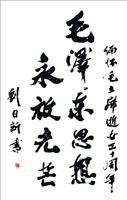 缅怀毛主席逝世三十周年
毛泽东思想
永放光芒
刘日新书